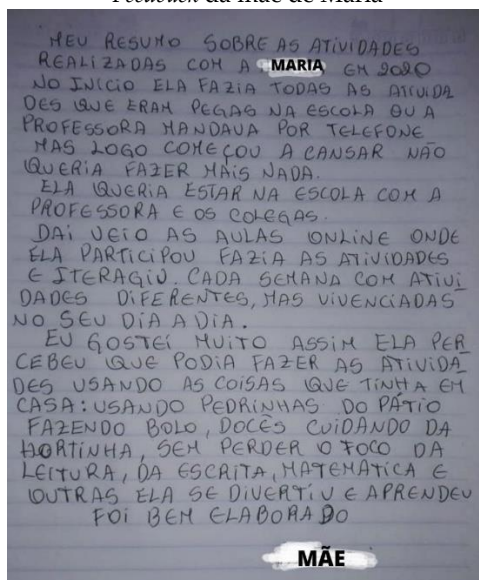 Feedback da mãe de Maria
MEU RESUMO SOBRE AS ATIVIDADES
REALIZADAS COM A MARIA, EM 2020
NO INÍCIO ELA FAZIA TODAS AS ATIVIDA
DES QUE ERAM PEGAS NA ESCOLA OU A
PROFESSORA MANDAVA POR TELEFONE
MAS LOGO COMEÇOU A CANSAR NÃO
QUERIA FAZER MAIS NADA.
ELA QUERIA ESTAR NA ESCOLA COM A
PROFESSORA E OS COLEGAS.
DAI VEIO AS AULAS ONLINE ONDE
ELA PARTICIPOU FAZIA AS ATIVIDADES
E ITERAGIU. CADA SEMANA COM ATIVI
DADES DIFERENTES, MAS VIVENCIADAS
NO SEU DIA A DIA.
EU GOSTEI MUITO ASSIM ELA PER
CEBEU QUE PODIA FAZER AS ATIVIDA
DES USANDO AS COISAS QUE TINHA EM
CASA: USANDO PEDRINHAS DO PÁTIO
FAZENDO BOLO, DOCES CUIDANDO DA
HORTINHA, SEM PERDER O FOCO DA
LEITURA, DA ESCRITA, MATEMÁTICA E
OUTRAS ELA SE DIVERTIU E APRENDEU
FOI BEM ELABORADO
MÃE